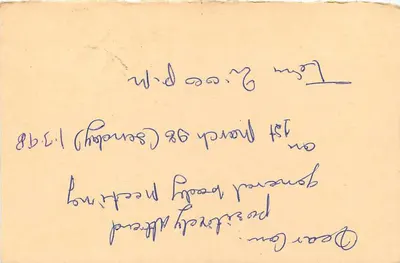 Dear Com.
positively attend
general body meeting
on
1st March 98 (Sunday) 1.3.98
Time 2:00 p.m